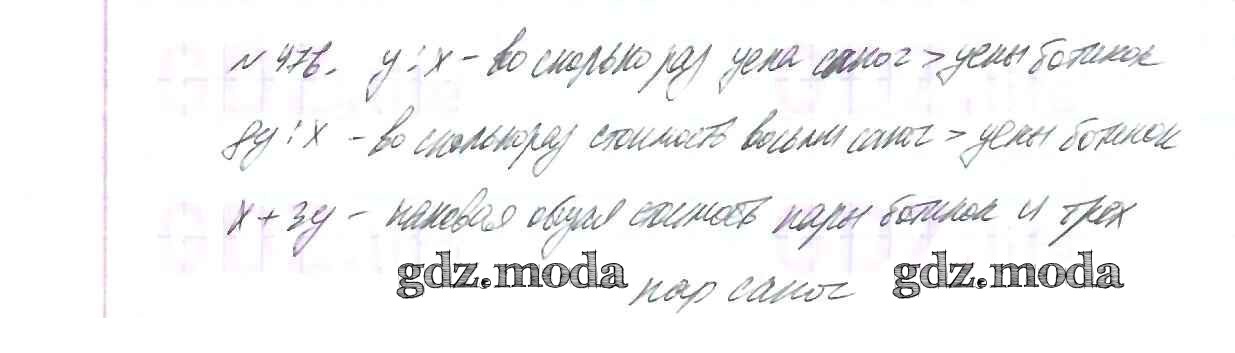 № 476. y : x – во сколько раз цена сапог > цены ботинок
8y : x – во сколько раз стоимость восьми сапог > цены ботинок
x + 3y – какова общая стоимость пары ботинок и трех
gdz.moda пар сапог gdz.moda